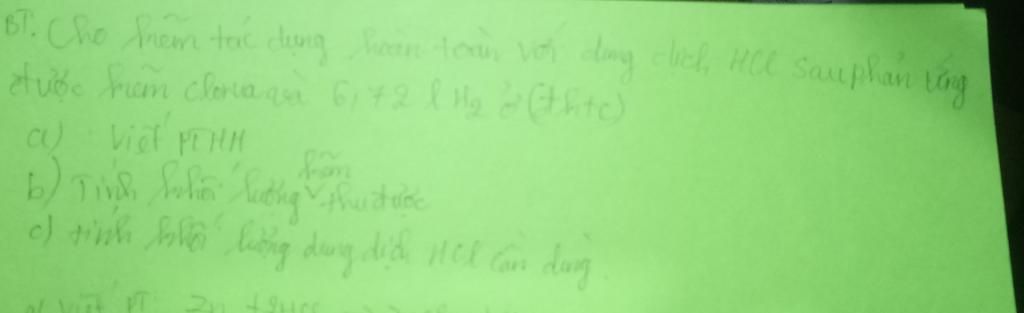 BT. Cho kẽm tác dụng hoàn toàn với dung dịch HCl sau phản ứng
được kẽm clorua và 6,72 l H2 ở (đktc)
a) Viết PTHH
b) Tính khối lượng kẽm thu được
c) tính khối lượng dung dịch HCl cần dùng.
a) Viết PT Zn